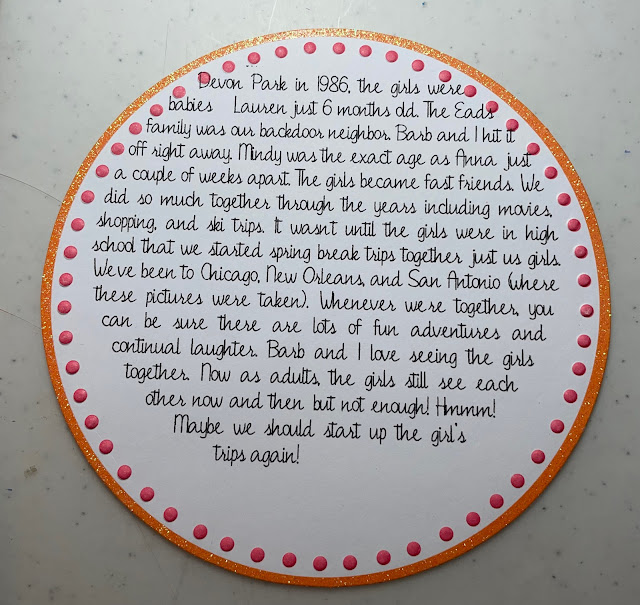 Devon Park in 1986, the girls were
babies Lauren just 6 months old. The Eads
family was our backdoor neighbor. Barb and I hit it
off right away. Mindy was the exact age as Anna just
a couple of weeks apart. The girls became fast friends. We
did so much together through the years including movies,
shopping, and ski trips. It wasn't until the girls were in high
school that we started spring break trips together just us girls.
We've been to Chicago, New Orleans, and San Antonio (where
these pictures were taken). Whenever we're together, you
can be sure there are lots of fun adventures and
continual laughter. Barb and I love seeing the girls
together. Now as adults, the girls still see each
other now and then but not enough! Hmmm!
Maybe we should start up the girl's
trips again!